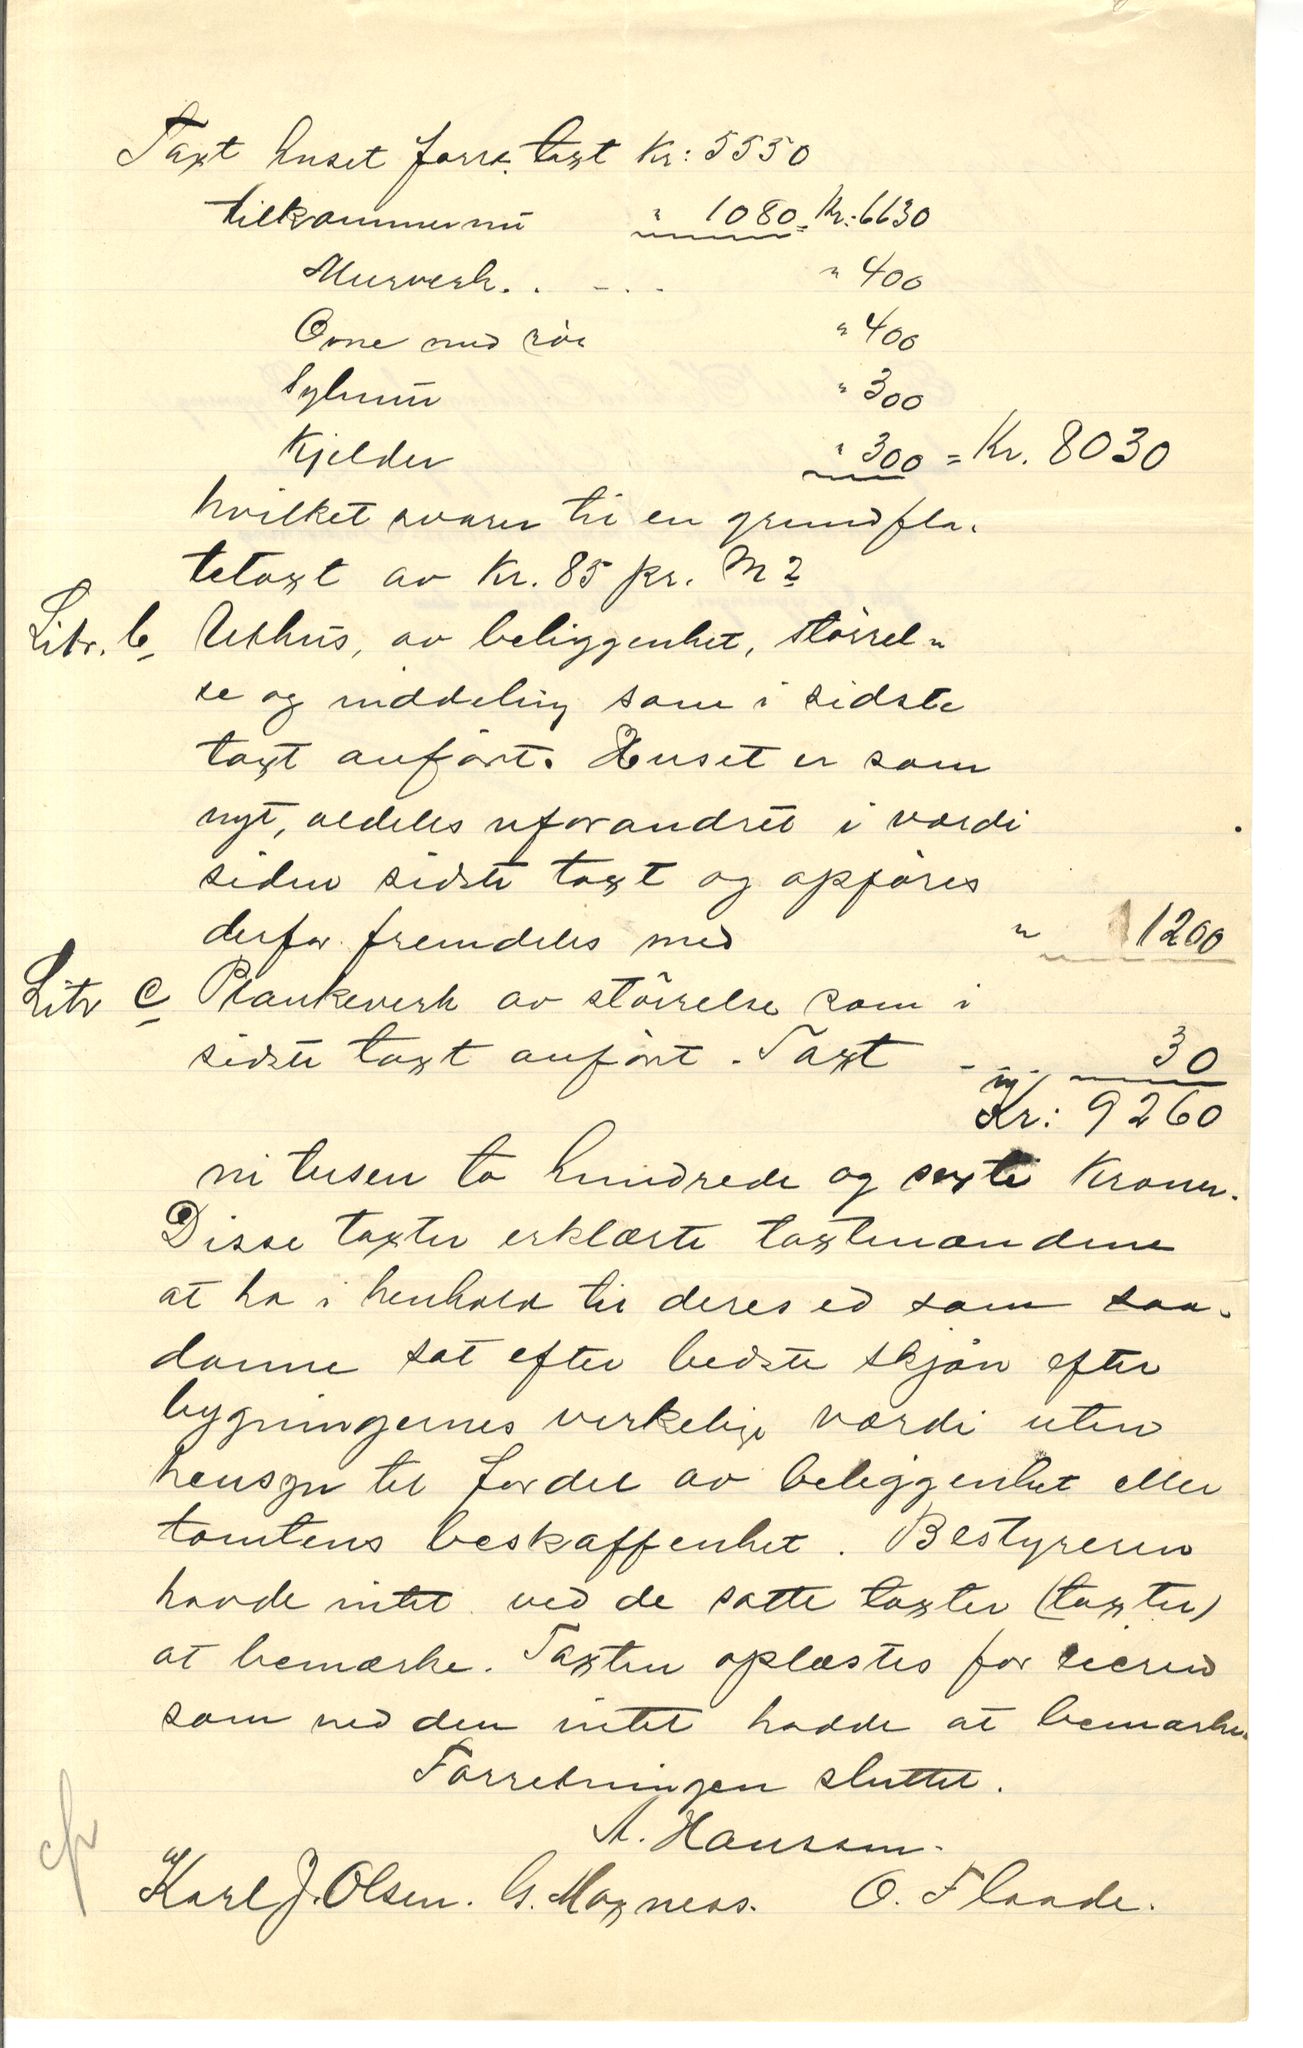 Taxt huset forr. taxt Kr: 5550
tilkommer nu " 1080 = Kr: 6630
Murverk. . - . . " 400
Ovne med rör " 400
" 300
Kjelder " 300 = Kr. 8030
hvilket svarer til en grundfla-
tetaxt av Kr. 85 pr. M2
Litr. b, Uthus, av beliggenhet, störrel-
se og inddeling som i sidste
taxt anfört. Huset er som
nyt, aldeles uforandret i værdi
siden sidste taxt og opföres
derfor fremdeles med " 1200
Litr c Plankeverk av störrelse som i
sidste taxt anfört. Taxt - - - 30
Kr: 9260
ni tusen to hundrede og sexti Kroner.
Disse taxter erklærte taxtmændene
at ha i henhold til deres ed som saa-
danne sat efter bedste skjön efter
bygningernes virkelige værdi uten
hensyn til fordel av beliggenhet eller
tomtens beskaffenhet. Bestyreren
havde intet ved de satte taxter (taxter)
at bemærke. Taxten oplæstes for eieren
som ved den intet hadde at bemærke.
Forretningen sluttet.
A. Hanssen.
Karl J. Olsen. G. Maxness. O. Flaade.